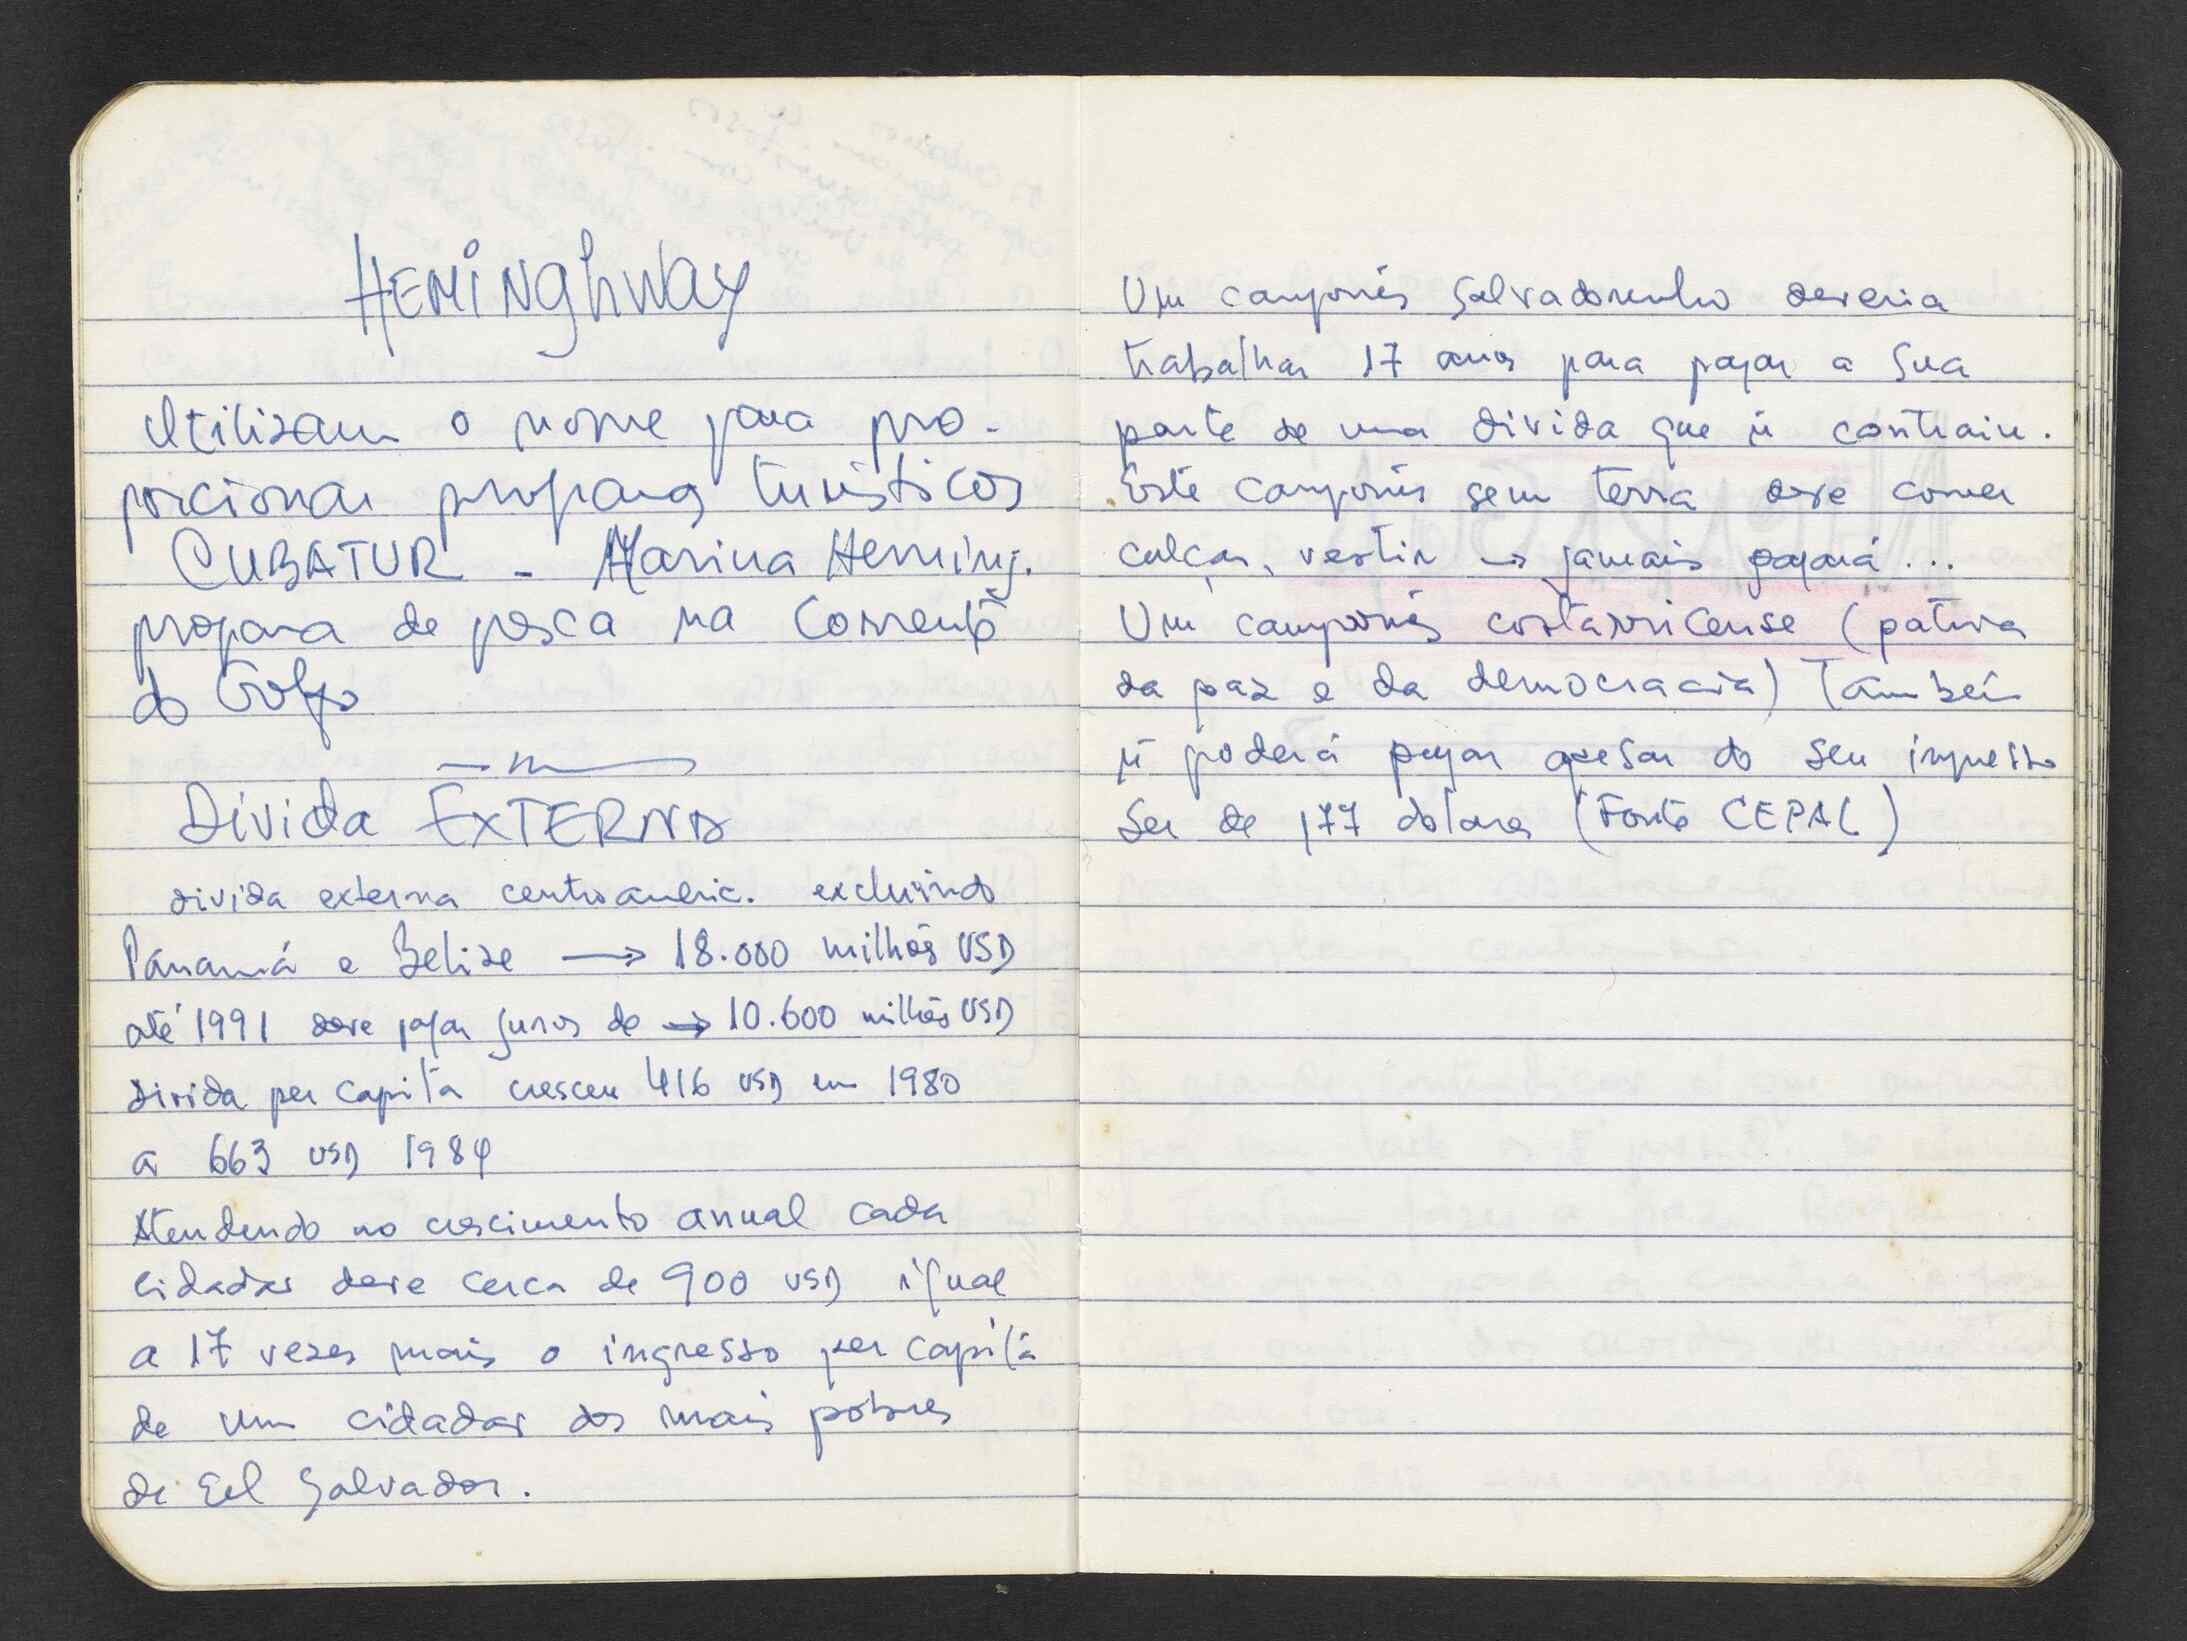 HEMINghWay
Utilizam o nome para pro-
porcionar programas turísticos
CUBATUR - Marina Heming.
programa de pesca na Corrente
do Golfo
Divida EXTERNA
divida externa centroameric. excluindo
Panamá e Belize → 18.000 milhões USD
até 1991 deve pagar juros de → 10.600 milhões USD
divida per capita cresceu 416 USD em 1980
a 663 USD 1984
Atendendo ao crescimento anual cada
cidadão deve cerca de 900 USD igual
a 17 vezes mais o ingresso per capita
de um cidadão dos mais pobres
de El Salvador.
Um camponês salvadorenho deveria
trabalhar 17 anos para pagar a sua
parte de uma divida que ñ contraiu.
Este camponês sem terra deve comer
calçar, vestir → jamais pagará...
Um camponês costarricense (pátria
da paz e da democracia) também
ñ poderá pagar apesar do seu ingresso
ser de 177 dolares (Fonte CEPAL)